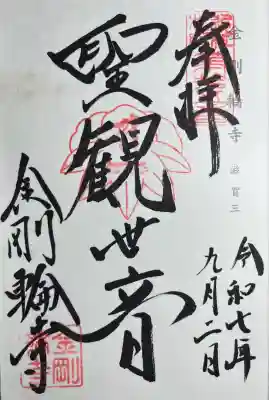 奉拝
金剛輪寺
令和七年
九月二日
聖観世音
金剛輪寺
金剛
輪寺